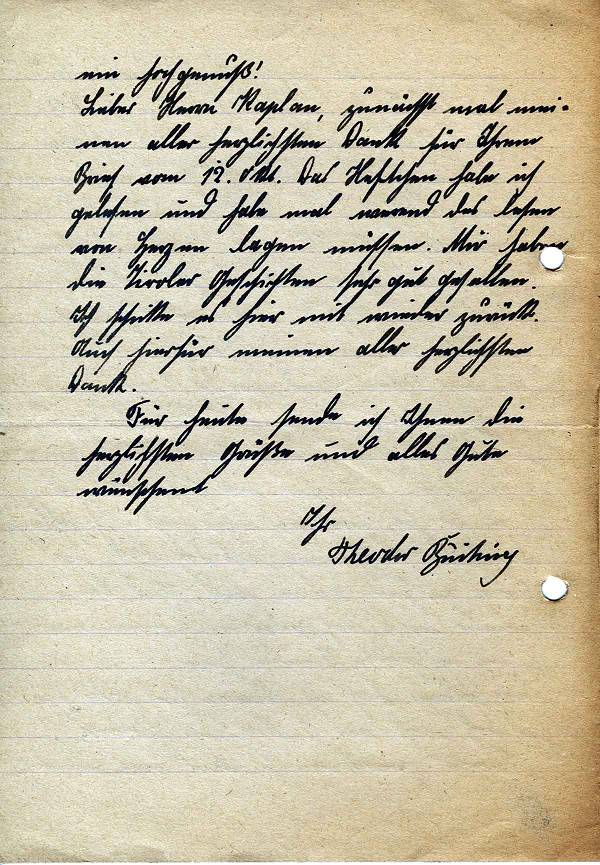 ein hochgenuß!
Lieber Herrn Kaplan, zunächst mal mei-
nen aller herzlichsten Dank für Ihrem
Brief vom 12. Okt. Das Heftchen habe ich
gelesen und habe mal werend des lesen
von Herzen lagen müssen. Mir haben
die Tiroler Geschichten sehr gut gefallen.
Ich schikke es hier mit wieder zurück.
Auch hierfür meinen aller herzlichsten
Dank.
Für heute sende ich Ihnen die
herzlichsten Grüße und alles Gute
wünschent
Ihr
Theodor